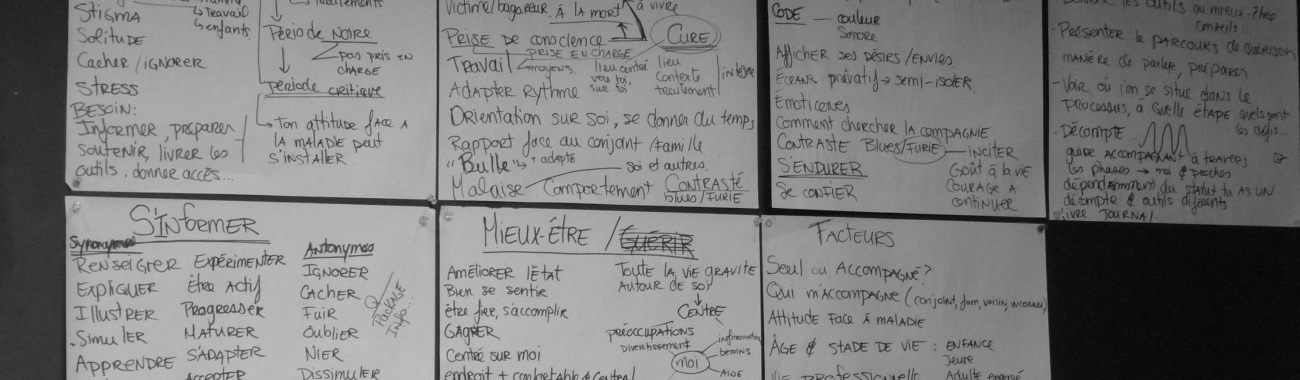 Travail
enfants
Stigma
Solitude
Cacher / ignorer
Stress
Besoin:
Informer, préparer
soutenir, livrer les
outils, donner accès...
Période Noire
pas pris en
charge
Période critique
Ton attitude face à
la maladie peut
s'installer
Victime/bagareur. à la mort à vivre
Prise de conscience
Cure
Prise en charge
Travail
moyens.
lieu centré
vers toi,
sur toi
lieu
contexte
traitement
intègre
Adapter Rythme
Orientation sur soi, se donner du temps
Rapport face au conjoint / famille
"Bulle" + adapte
soi et autres.
Malaise Comportement Contrasté
blues/furie
Code — couleur
sonore
Afficher ses désirs / envies
Écrans privatif → semi-isoler.
Émoticones
Comment chercher la compagnie
Contraste Blues/Furie — inciter
S'endurer
Se confier
Goût à la vie
Courage à
continuer
les outils au mieux-être
conseils...
- Présenter le parcours de guérison
manière de parler, préparer
- Voir où l'on se situe dans le
processus, à quelle étape, quels sont
les défis...
- Décompte
guide accompagnant à travers
les phases → moi & proches
dépendamment du statut tu as un
décompte & outils différents.
Livre Journal
S'informer
Synonymes
Renseigner
Expliquer
Illustrer
Simuler
Apprendre
Expérimenter
Être actif
Progresser
Maturer
S'adapter
Accepter
Antonymes
Ignorer
Cacher
Fuir
Oublier
Nier
Dissimuler
Package
Info...
Mieux-être / Guérir
Améliorer l'état
Bien se sentir
être fier, s'accomplir
Gagner
Centré sur moi
endroit + confortable & central
Toute la vie gravite
autour de soi
Centre
préoccupations
Divertissement
information
besoins
moi
Aide
Facteurs
Seul ou Accompagné?
Qui m'accompagne (conjoint, fam, voisin, inconnu)
Attitude face à maladie
Âge & stade de vie : enfance
Jeune
Adulte
Vie professionnelle